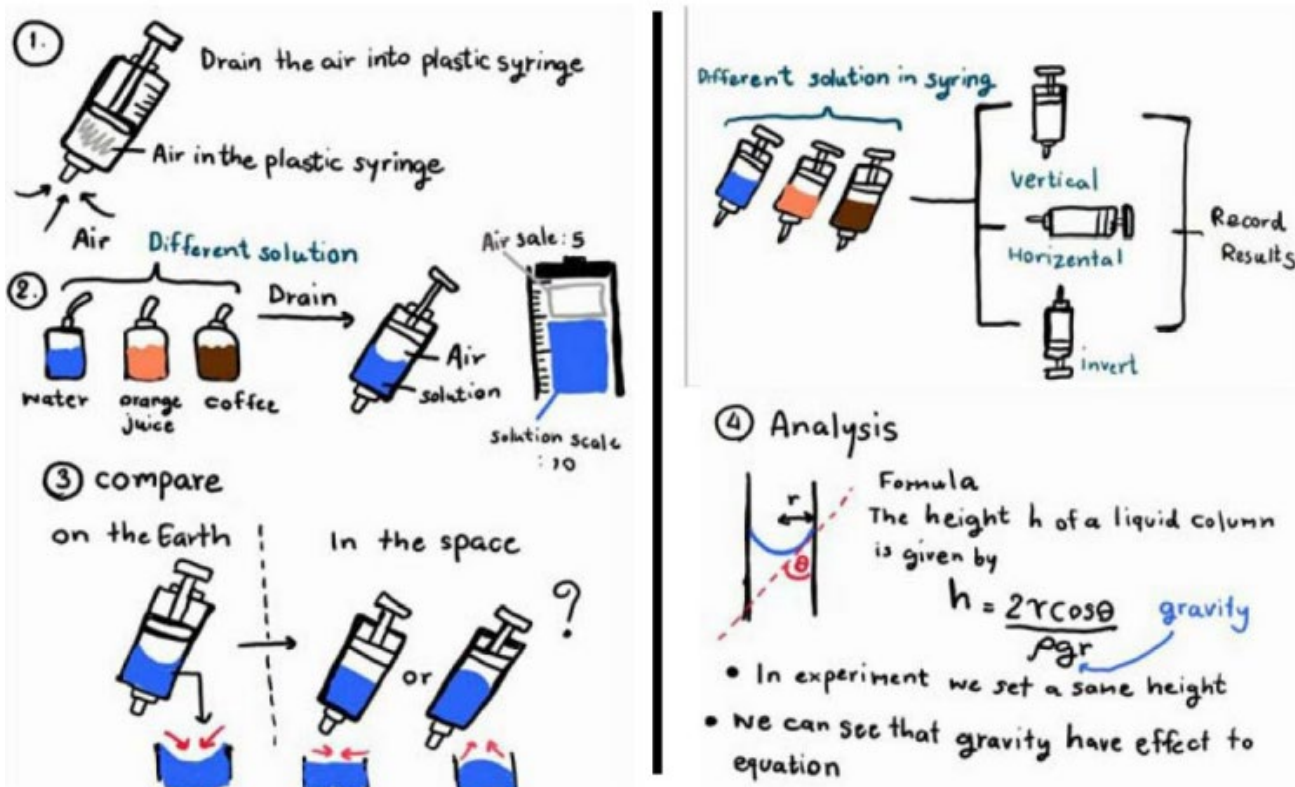 1.
Drain the air into plastic syringe
Air in the plastic syringe
Air
Different solution
2.
Drain
water
orange
juice
coffee
Air
solution
Air sale: 5
solution scale
: 10
3 compare
on the Earth
In the space
?
or
Different solution in syring
Vertical
Horizental
invert
Record
Results
4 Analysis
r
θ
Formula
The height h of a liquid column
is given by
h = 2rcosθ
ρgr
gravity
• In experiment we set a same height
• We can see that gravity have effect to
equation